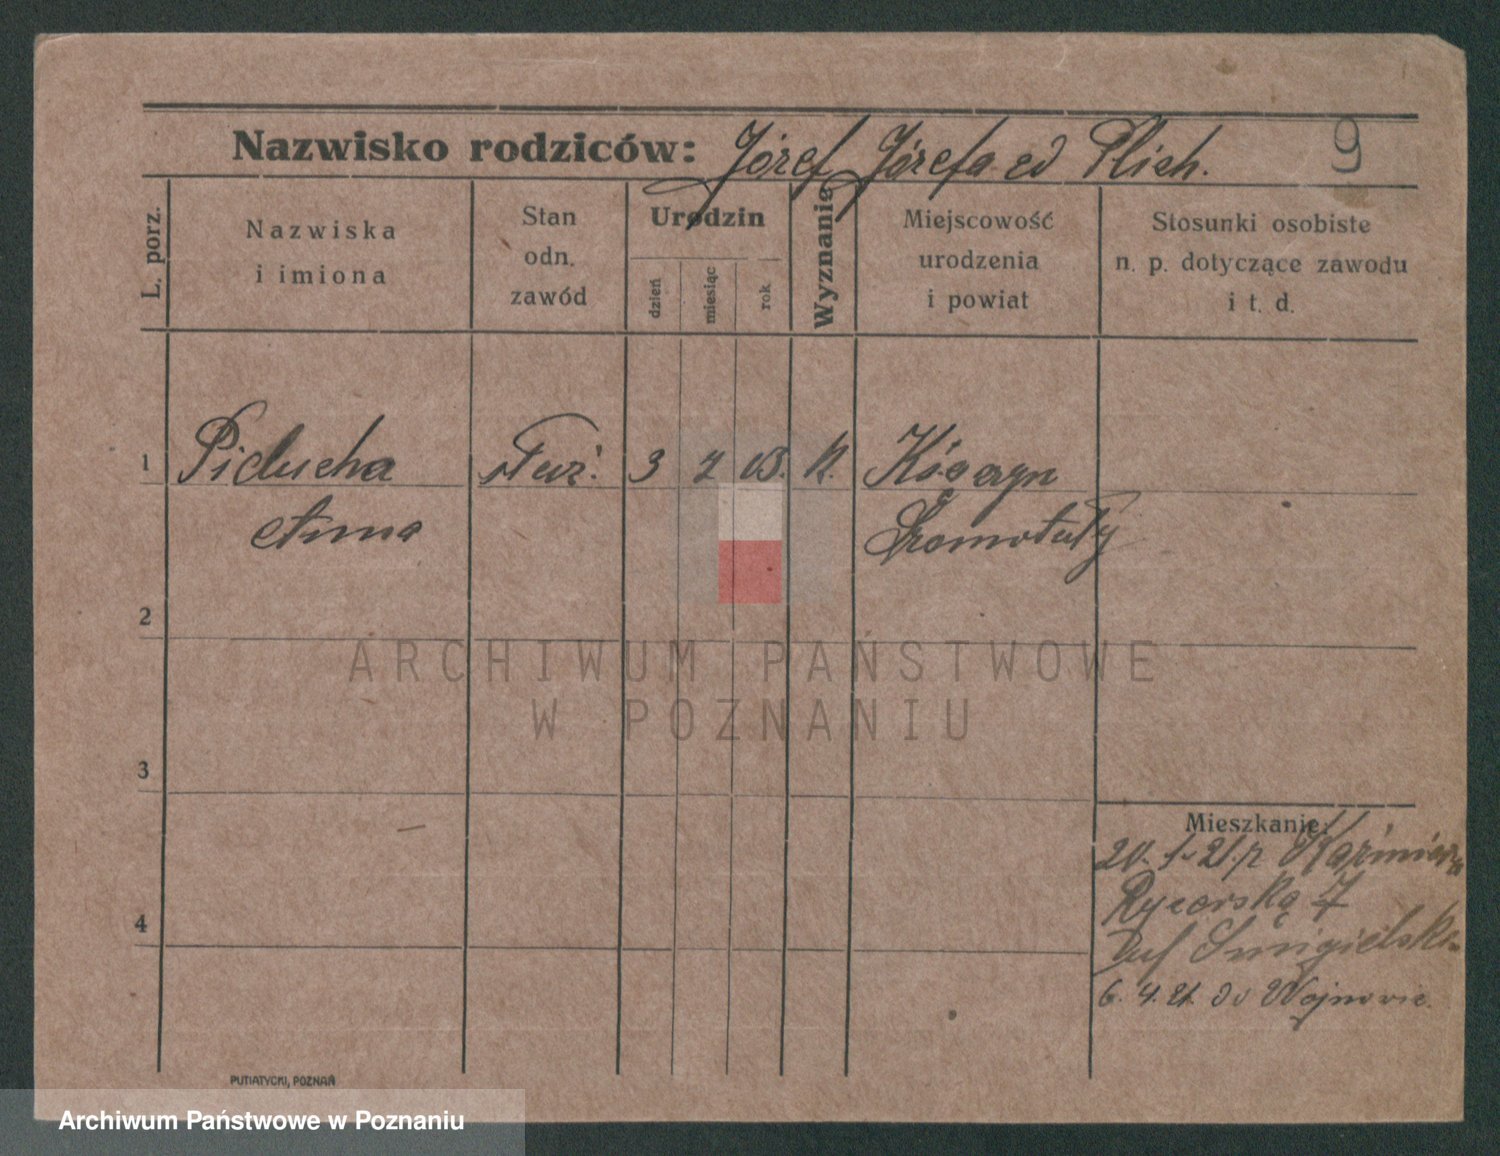 Nazwisko rodziców: Józef Józefa ed Plich. 9
L. porz.
Nazwiska
i imiona
Stan
odn.
zawód
Urodzin
dzień
miesiąc
rok
Wyznanie
Miejscowość
urodzenia
i powiat
Stosunki osobiste
n. p. dotyczące zawodu
i t. d.
1 Piducha 3 03. K.
Anna
2
ARCHIWUM PAŃSTWOWE
W POZNANIU
3
4
Mieszkanie:
20. 1. 21. z Kaźmierz
Rycerska 7
Śmigielska
6. 4. 21. do Wojnowic.
PUTIATYCKI, POZNAŃ
Archiwum Państwowe w Poznaniu